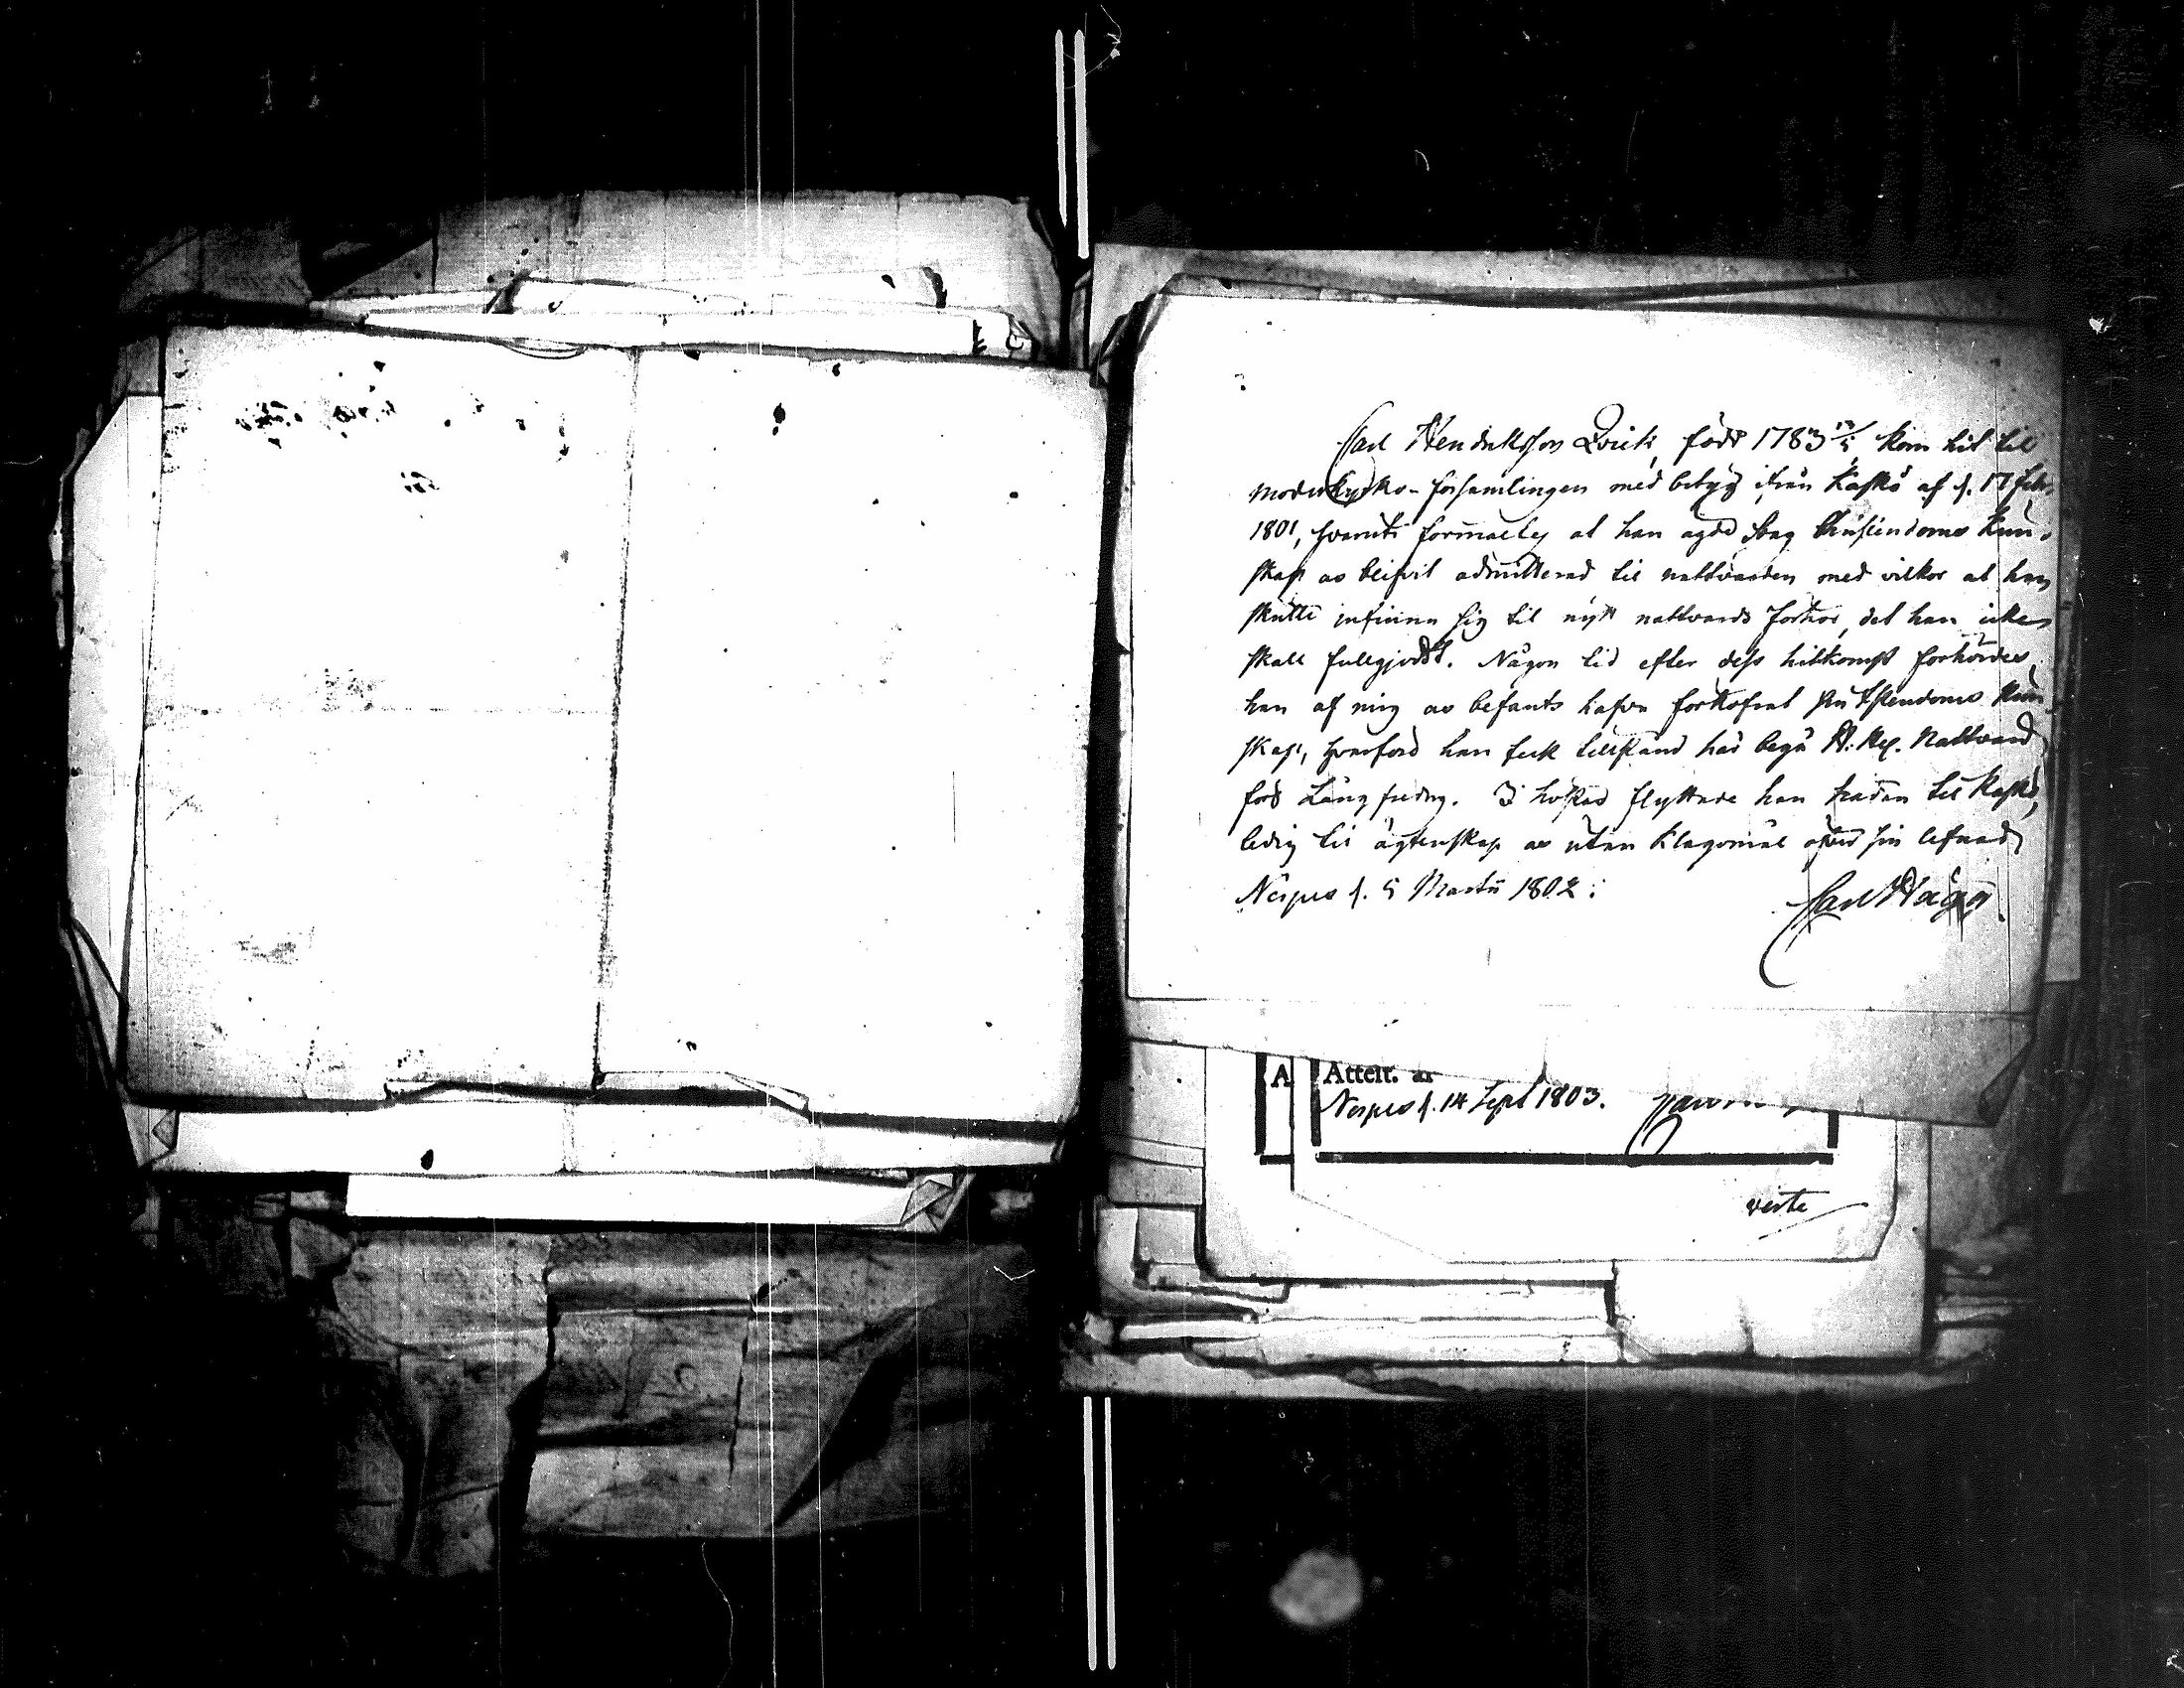 Carl Hendriksson Qvick, född 1783 12/5, kom hit til
moderkyrko-församlingen med betyg ifrån Kaskö af d. 17 febr.
1801, hvaruti förmäles at han ägde svag Christendoms kun-
skap oc blifvit admitterad til nattvarden med vilkor at han
skulle infinna sig til nytt nattvards förhör, det han icke
skall fullgjordt. Någon tid efter dess hitkomst förhördes
han af mig oc befants hafva förkofrat sin Christendoms kun-
skap, hvarföre han feck tillstånd här begå H. Nattvard
före Långfredag. I höstas flyttade han hädan til Kaskö,
ledig til ägtenskap oc utan klagomål öfver sin lefnad
Nerpes d. 5 Martii 1802:
Carl Hägg
A
Attest. af
Nerpes d. 14 Sept 1803.
verte